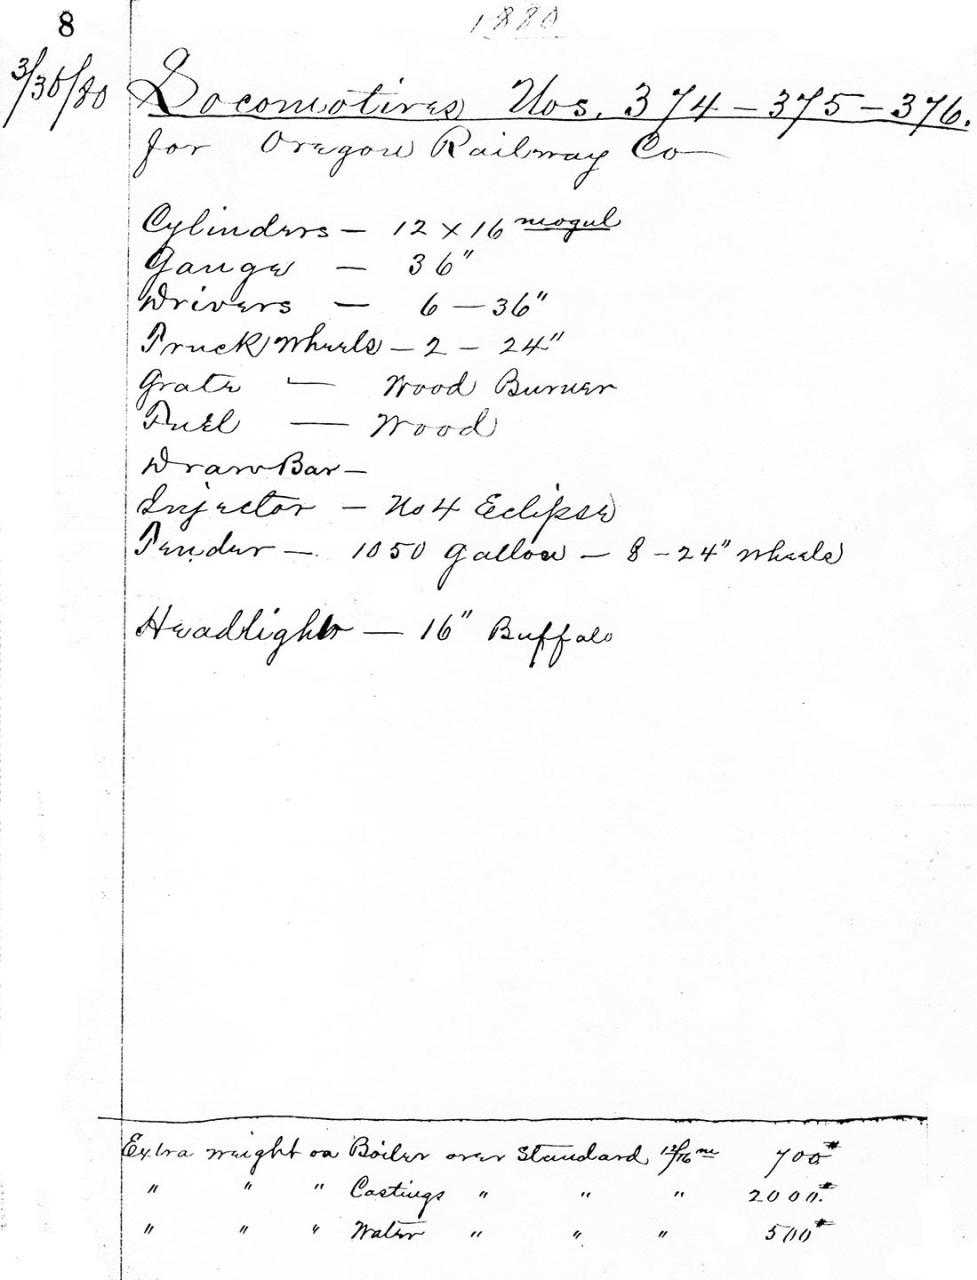 8
1880
3/30/80
Locomotives Nos. 374 – 375 – 376.
for Oregon Railway Co
Cylinders – 12 x 16 mogul
Gauge – 36"
Drivers – 6 – 36"
Truck Wheels – 2 – 24"
Grate – Wood Burner
Fuel – Wood
Draw Bar –
Injector – No 4 Eclipse
Tender – 1050 Gallon – 8 – 24" Wheels
Headlight – 16" Buffalo
Extra weight on Boiler over Standard 12/16 700#
" " " Castings " " " 2000#
" " " Water " " " 500#